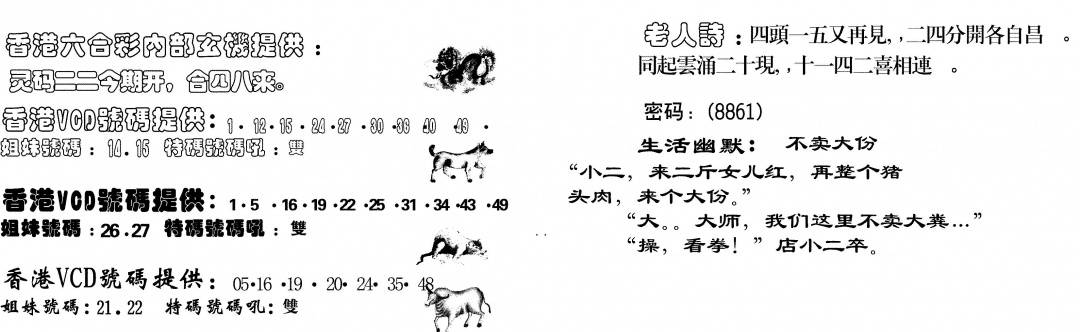 香港六合彩内部玄機提供：
灵码二二今期开，合四八来。
香港VCD號碼提供：1·12·15·24·27·30·38 40 49·
姐妹號碼：14.15 特碼號碼吼：雙
香港VCD號碼提供：1·5·16·19·22·25·31·34·43·49
姐妹號碼：26.27 特碼號碼吼：雙
香港VCD號碼提供：05·16·19·20·24·35·48
姐妹號碼：21.22 特碼號碼吼：雙
老人詩：四頭一五又再見,,二四分開各自昌。
同起雲涌二十現,,十一四二喜相連。
密码：(8861)
生活幽默： 不卖大份
“小二，来二斤女儿红，再整个猪
头肉，来个大份。”
“大。。大师，我们这里不卖大粪…”
“操，看拳！”店小二卒。